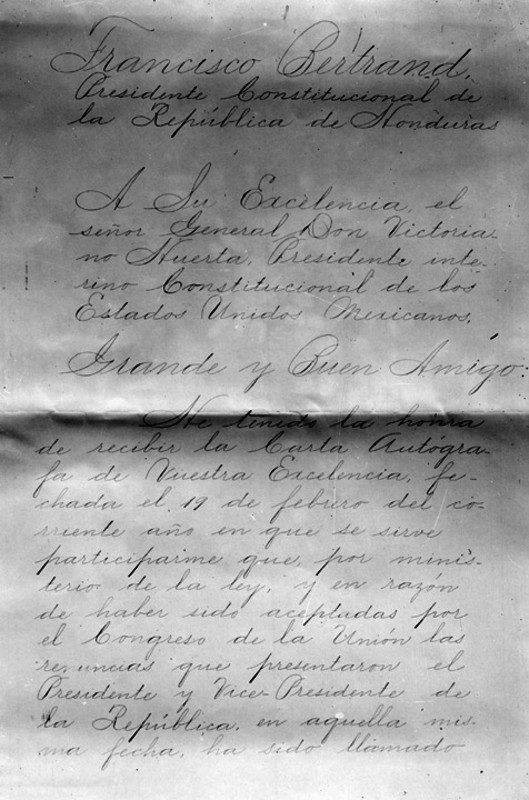 Francisco Bertrand,
Presidente Constitucional de
la República de Honduras
A Su Excelencia, el
señor General Don Victoria-
no Huerta, Presidente inte-
rino Constitucional de los
Estados Unidos Mexicanos.
Grande y Buen Amigo:
He tenido la honra
de recibir la Carta Autógra-
fa de Vuestra Excelencia, fe-
chada el 19 de febrero del co-
rriente año en que se sirve
participarme que, por minis-
terio de la ley, y en razón
de haber sido aceptadas por
el Congreso de la Unión las
renuncias que presentaron el
Presidente y Vice-Presidente de
la República, en aquella mis-
ma fecha, ha sido llamado